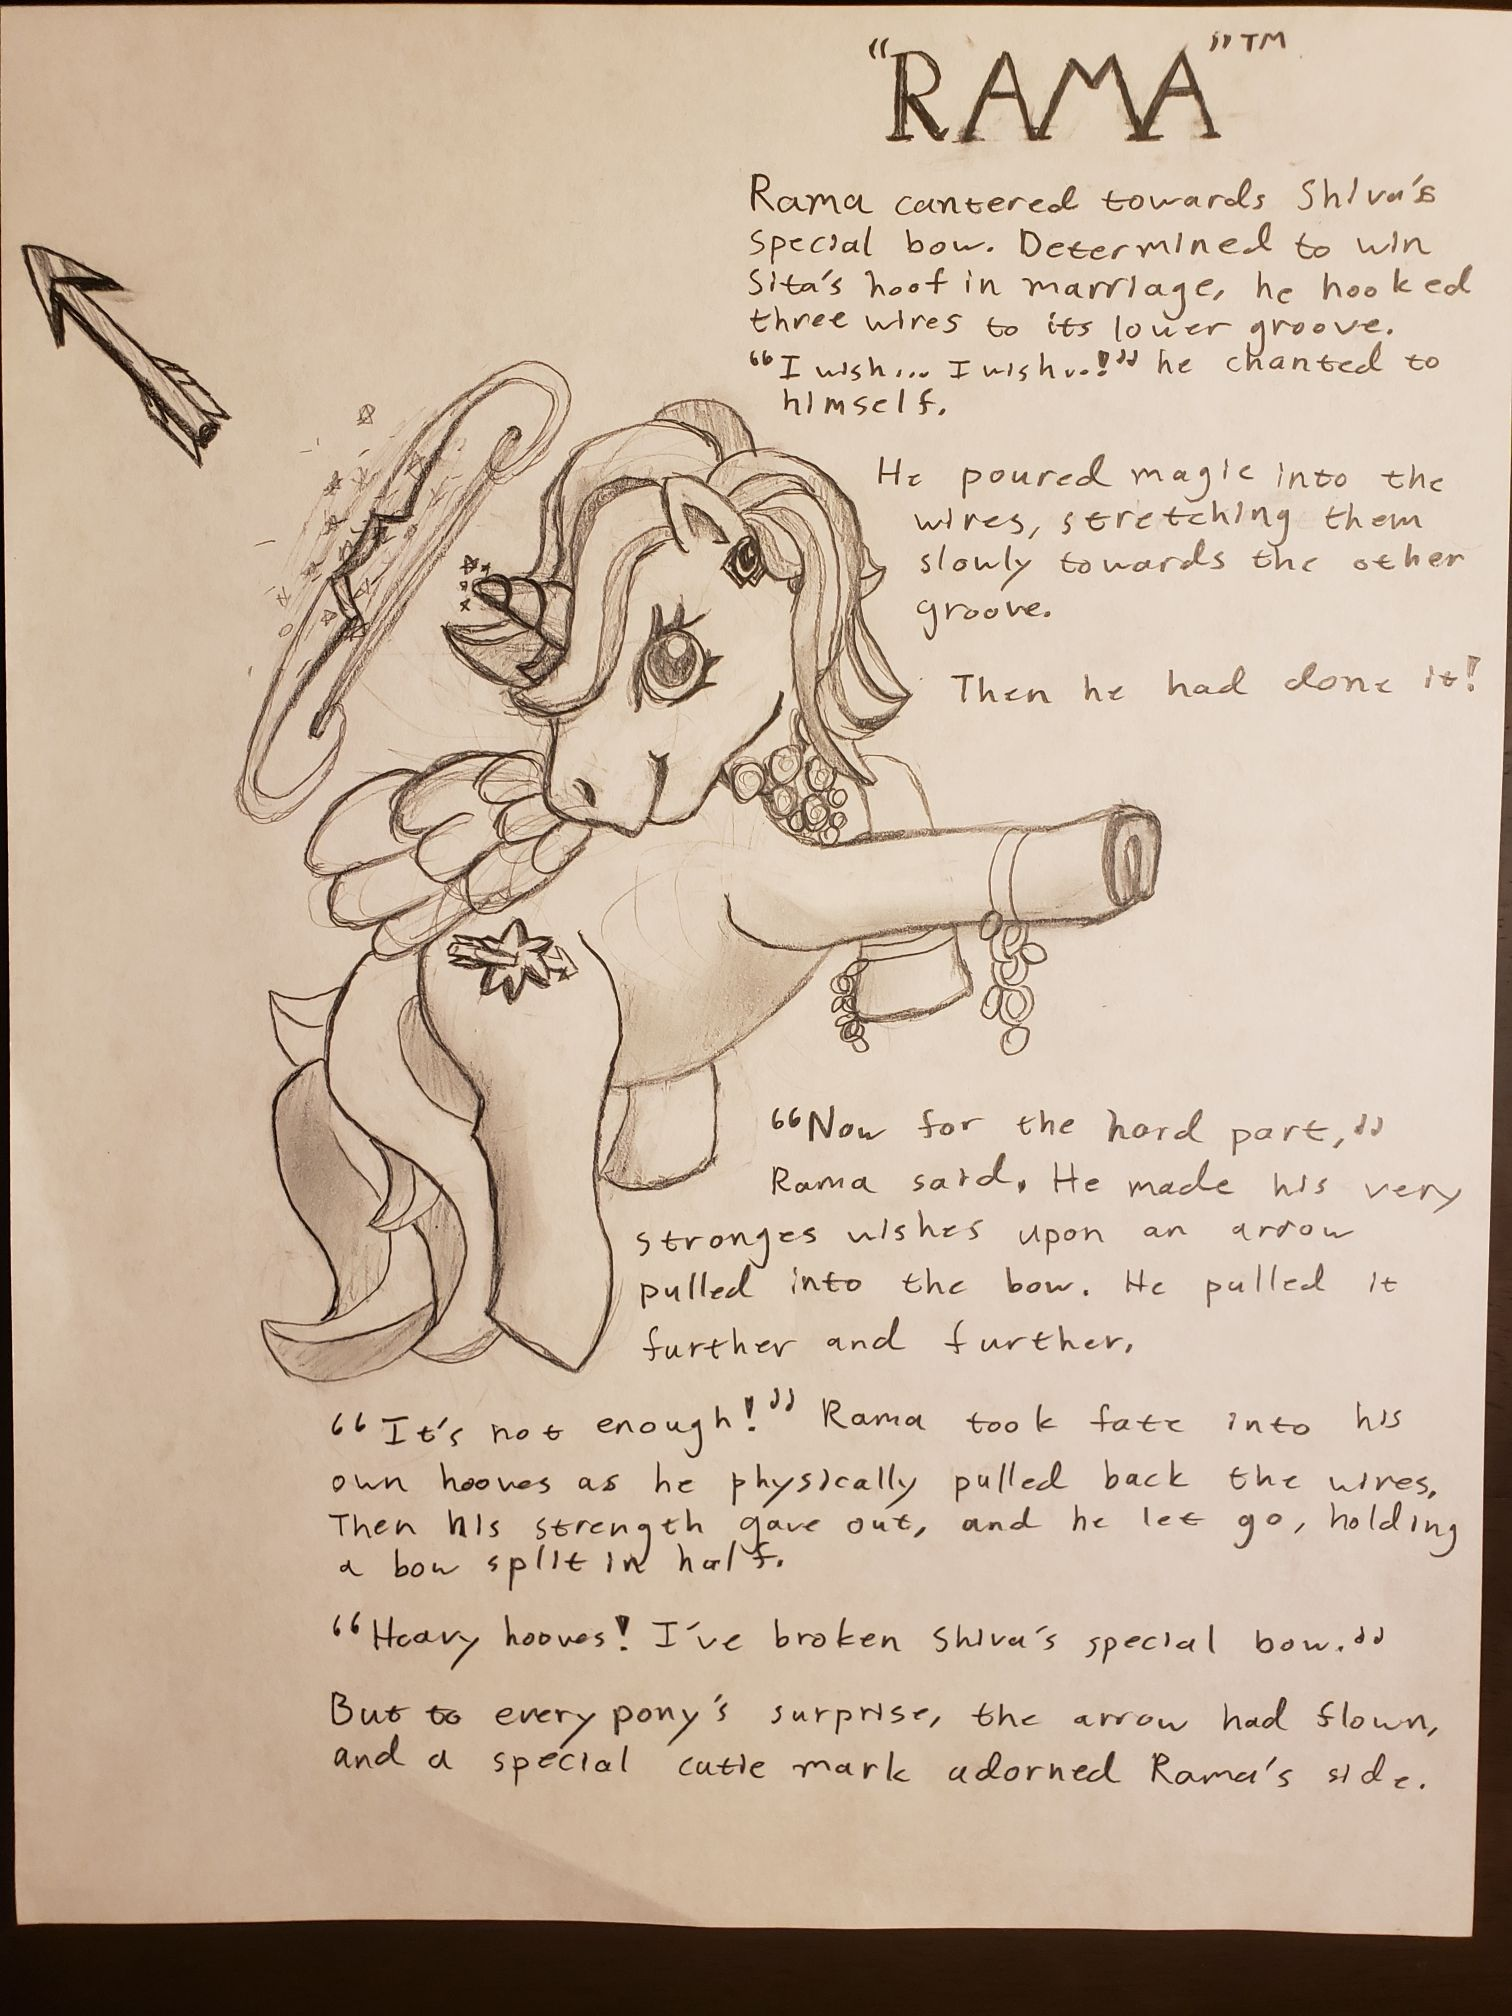 "RAMA"™
Rama cantered towards Shiva's
special bow. Determined to win
Sita's hoof in marriage, he hooked
three wires to its lower groove.
"I wish... I wish..!" he chanted to
himself.
He poured magic into the
wires, stretching them
slowly towards the other
groove.
Then he had done it!
"Now for the hard part,"
Rama said. He made his very
stronges wishes upon an arrow
pulled into the bow. He pulled it
further and further.
"It's not enough!" Rama took fate into his
own hooves as he physically pulled back the wires.
Then his strength gave out, and he let go, holding
a bow split in half.
"Heavy hooves! I've broken Shiva's special bow."
But to every pony's surprise, the arrow had flown,
and a special cutie mark adorned Rama's side.